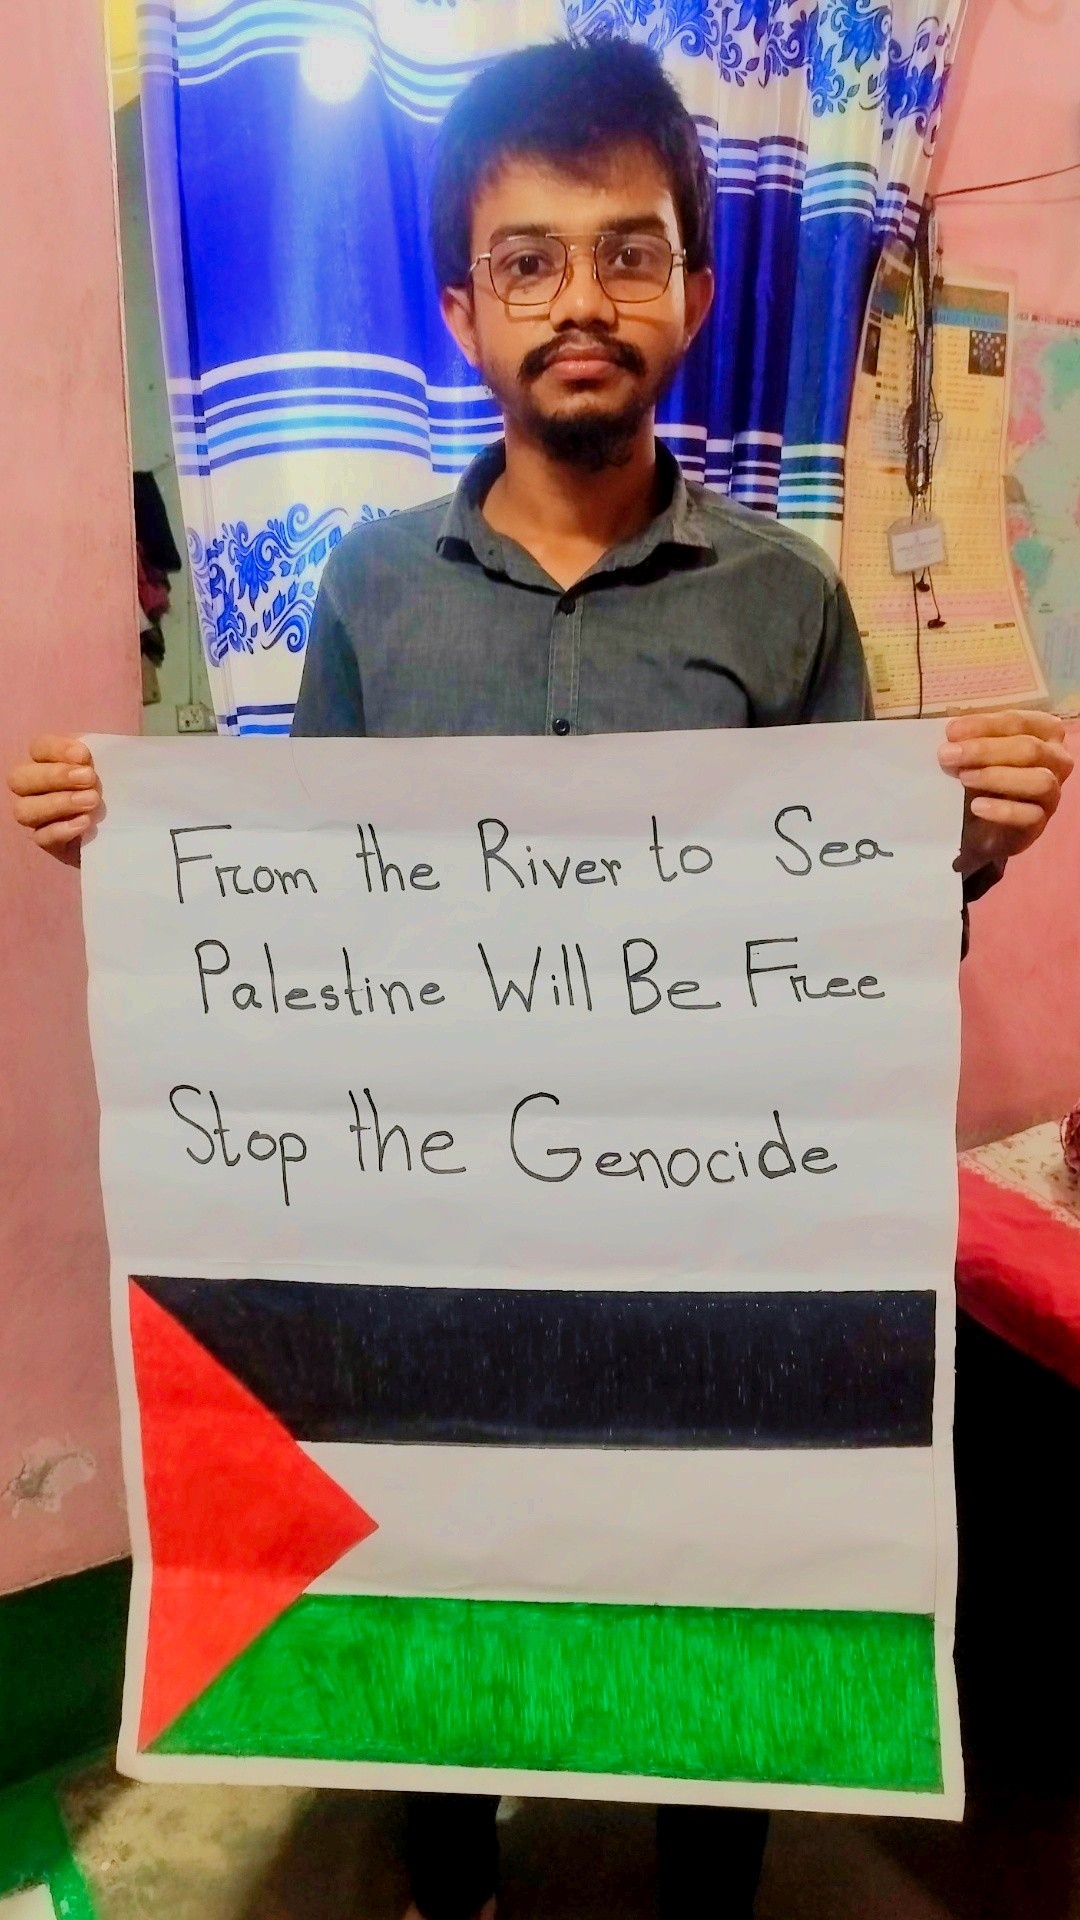 From the River to Sea
Palestine Will Be Free
Stop the Genocide